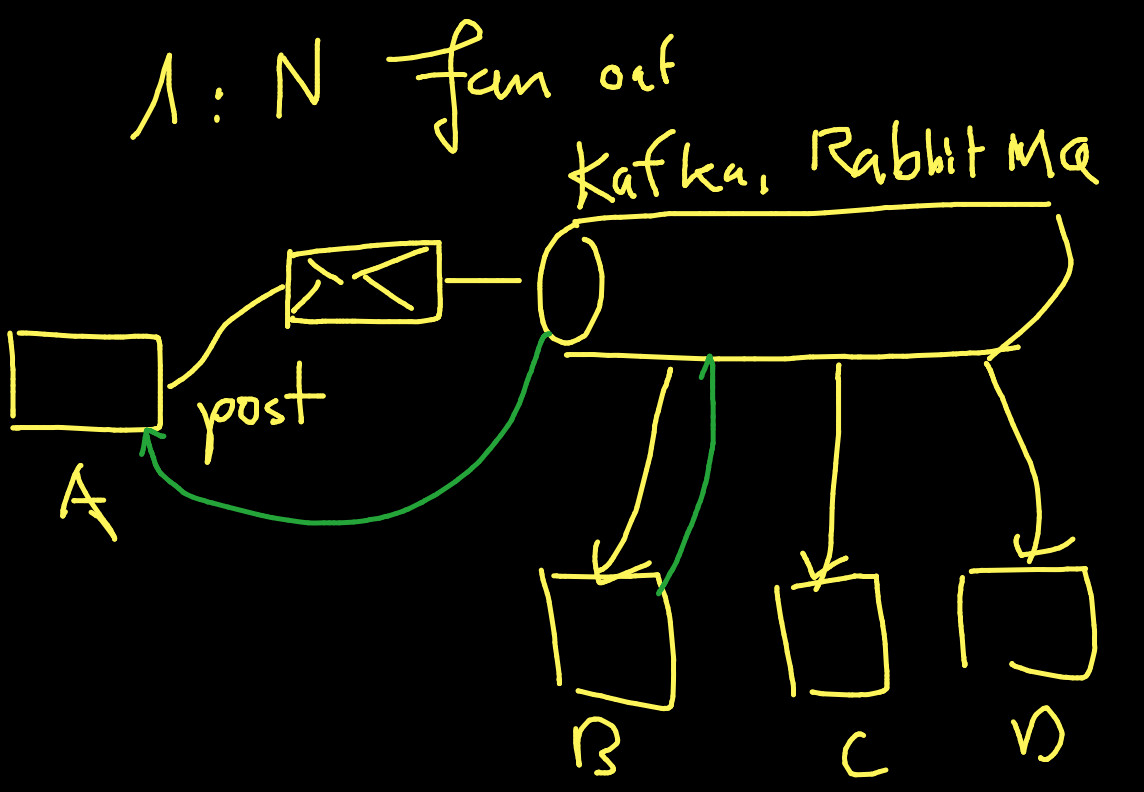 1: N fan out
Kafka, RabbitMQ
post
A
B
C
D